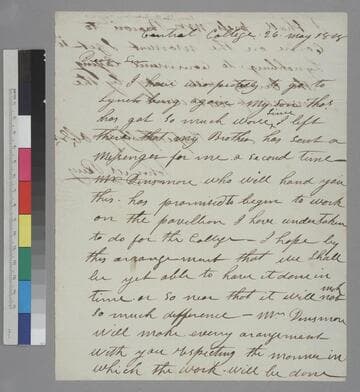 Central College 26 May 1818
Dear Sir
I have unexpectedly to go to
Lynchburg again — My Son Tho.s
has got so much worse Since I left
there that my Brother has sent a
Messenger for me a second time —
Mr. Dinsmore who will hand you
this. has promised to begin to work
on the pavillion I have undertaken
to do for the College — I hope by
this arrangement that we shall
be yet able to have it done in
time or so near that it will not
much
so much difference — Mr. Dinsmore
will make every arangement
with you respecting the manner in
which the work will be done